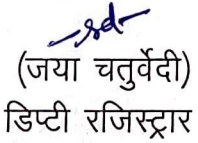 -sd-
(जया चतुर्वेदी)
डिप्टी रजिस्ट्रार